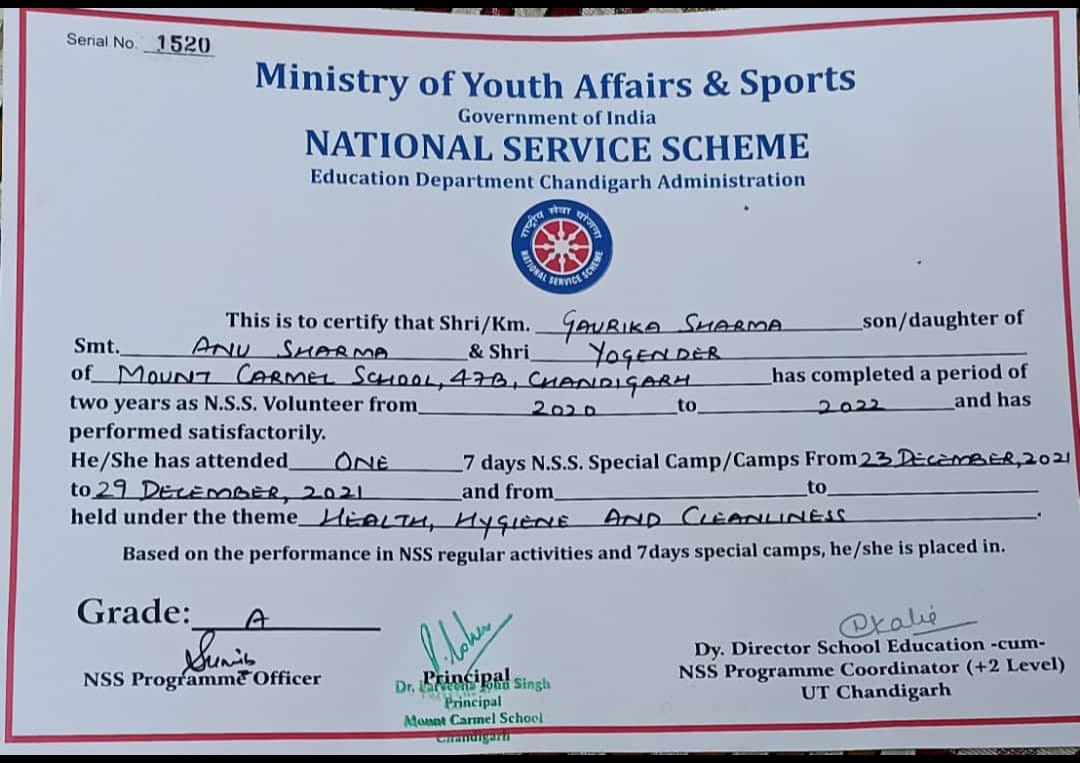 Serial No. 1520
Ministry of Youth Affairs & Sports
Government of India
NATIONAL SERVICE SCHEME
Education Department Chandigarh Administration
राष्ट्रीय सेवा योजना
NATIONAL SERVICE SCHEME
This is to certify that Shri/Km. GAURIKA SHARMA son/daughter of
Smt. ANU SHARMA & Shri YOGENDER
of MOUNT CARMEL SCHOOL, 47B, CHANDIGARH has completed a period of
two years as N.S.S. Volunteer from 2020 to 2022 and has
performed satisfactorily.
He/She has attended ONE 7 days N.S.S. Special Camp/Camps From 23 DECEMBER, 2021
to 29 DECEMBER, 2021 and from to
held under the theme HEALTH, HYGIENE AND CLEANLINESS .
Based on the performance in NSS regular activities and 7days special camps, he/she is placed in.
Grade: A
NSS Programme Officer
Principal
Dr. Parveena John Singh
Principal
Mount Carmel School
Chandigarh
Dy. Director School Education -cum-
NSS Programme Coordinator (+2 Level)
UT Chandigarh